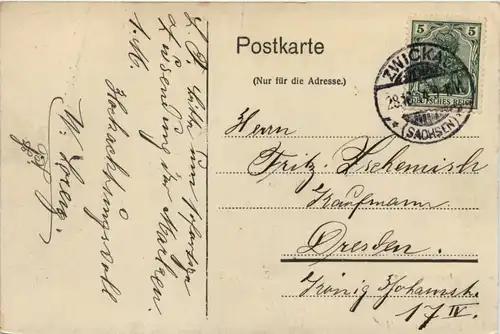 Postkarte
(Nur für die Adresse.)
5 5
DEUTSCHES REICH
ZWICKAU
(SACHSEN)
Herrn
Fritz Tschemisch
Kaufmann
Dresden.
König Johannst.
17 IV.
bitte um
Zusendung der Marken.
Hochachtungsvoll
W. Lorenz